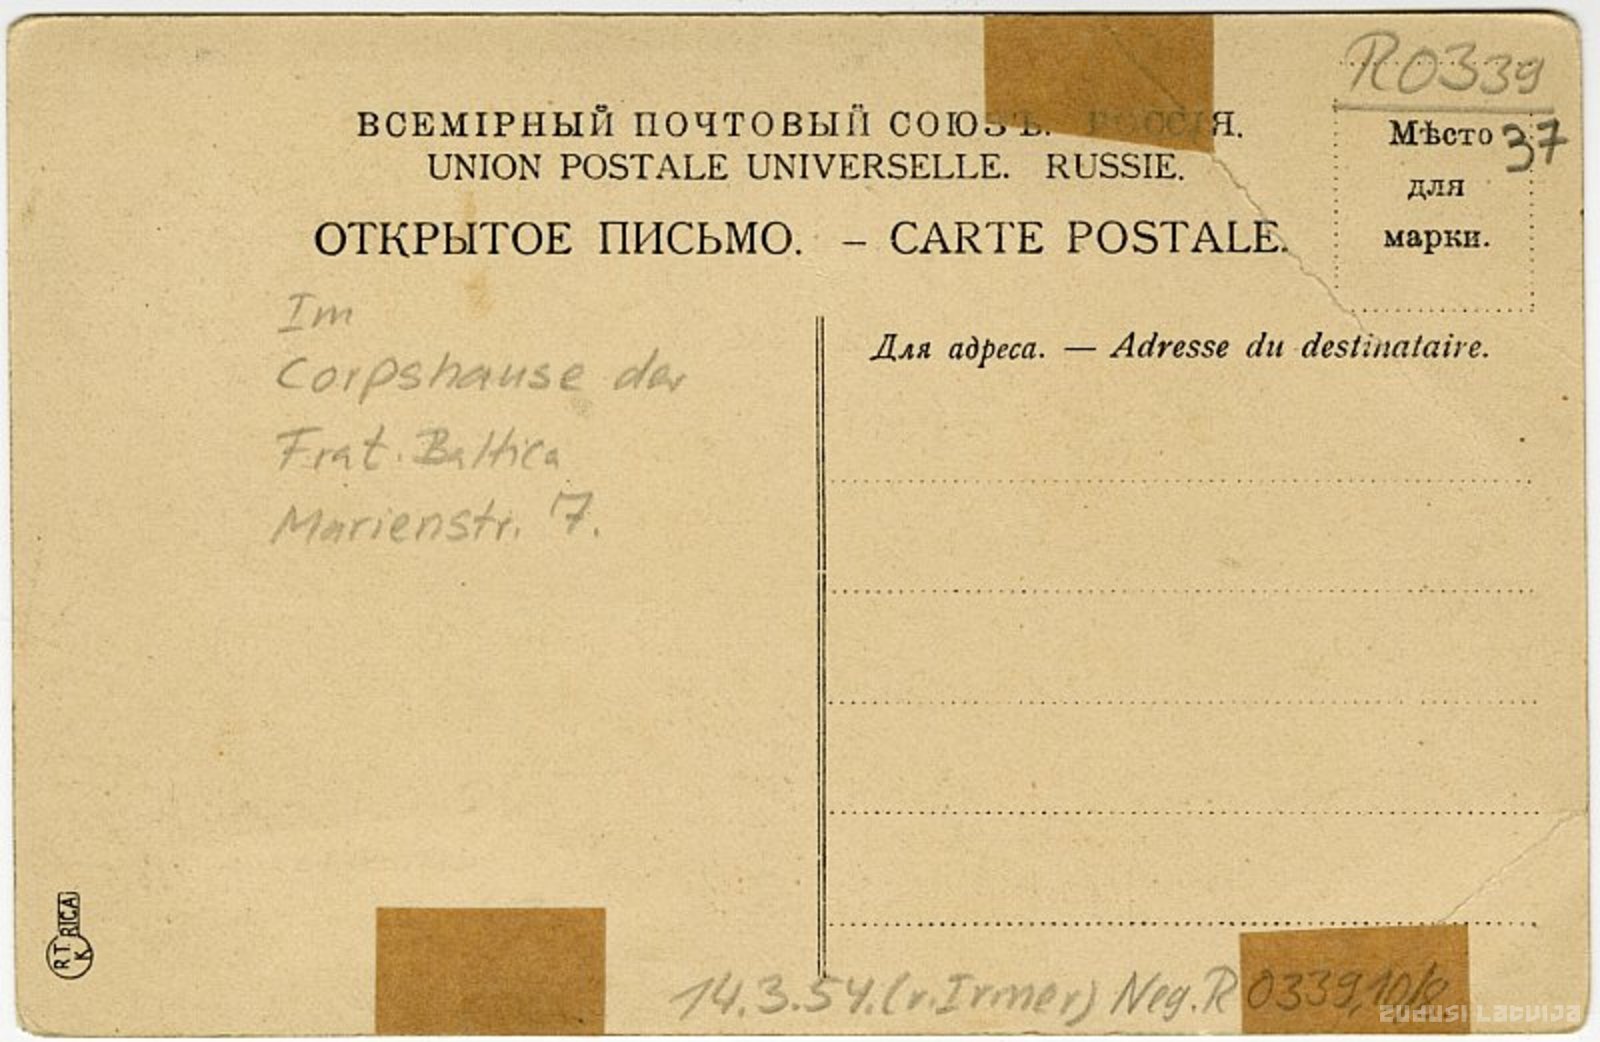 R0339
ВСЕМІРНЫЙ ПОЧТОВЫЙ СОЮЗЪ. РОССІЯ.
UNION POSTALE UNIVERSELLE. RUSSIE.
ОТКРЫТОЕ ПИСЬМО. – CARTE POSTALE.
Мѣсто
для
марки.
37
Im
Corpshause der
Frat. Baltica
Marienstr. 7.
Для адреса. — Adresse du destinataire.
R T K RIGA
14.3.54. (v. Irmer) Neg. R 0339,10/8
ZUDUSI LATVIJA